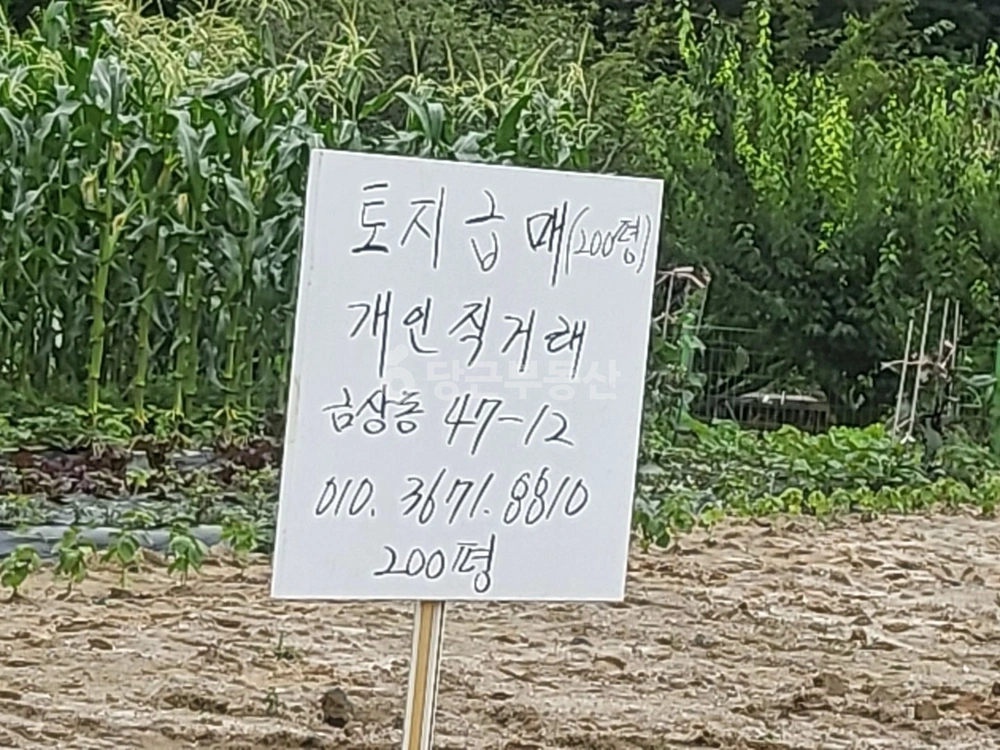 토지급매(200평)
개인직거래
당근부동산
금상동 47-12
010. 3671. 8810
200평